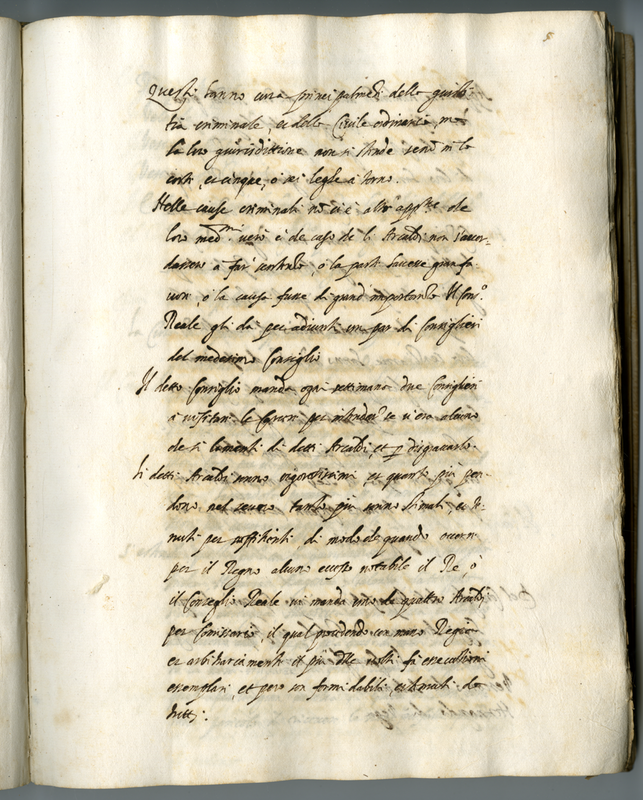 5
Questi hanno cura principalmente della giusti-
tia criminale, et della Civile ordinaria, ma
la loro giurisdittione non si stende senon in la
corte, et cinque, o sei leghe à torno.
Nelle cause criminali nõ vi è altro appne che
loro medmi. vero è che caso che li Arcaldi non s'accor-
dassero a far sententia, o la parte havesse gran fa-
vori, o la causa fusse di grand' importanza Il Conso.
Reale gli da per adiunti un par di Consiglieri
del medesimo Consiglio
Il detto Consiglio manda ogni settimana due Consiglieri
à visitare le Carceri per intender se vi era alcuno
che si lamenti di detti Arcaldi, et p disgravarlo.
Li detti Arcaldi sono rigorosissimi, et quanto più pen-
dono nel severo tanto più sono stimati, et te-
nuti per sufficienti, di modo che quando occorre
per il Regno alcuno eccesso notabile il Re, o
il Conseglio Reale vi manda uno de quattro Arcaldi
per Comissario, il qual procedendo con mano Regia
et arbitrariamente il più delle volte fà essecutioni
exemplari, et pero son formidabili, et temuti da
tutti.